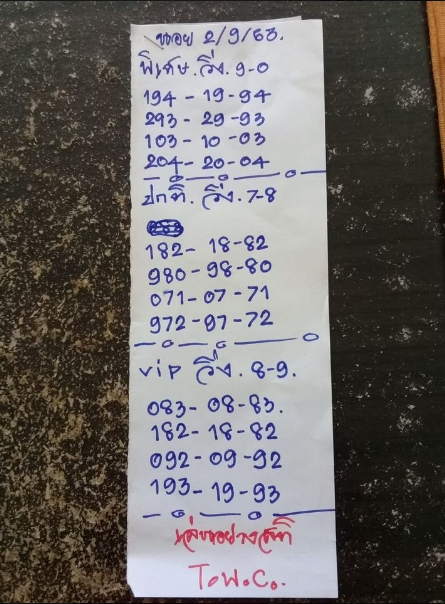 ฮานอย 2/9/63.
พิเศษ.วิ่ง.9-0
194-19-94
293-29-93
103-10-03
204-20-04
ปกติ.วิ่ง.7-8
182-18-82
980-98-80
071-07-71
972-97-72
vip วิ่ง.8-9.
083-08-83.
182-18-82
092-09-92
193-19-93
เล่นอย่างมีสติ
T.W.C.